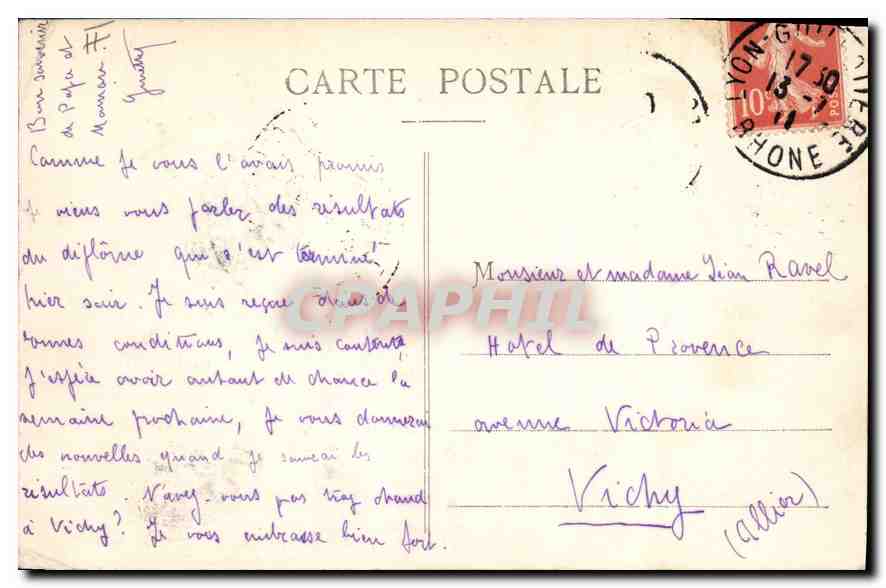 Bon souvenir
de Papa et
Maman.
CARTE POSTALE
LYON-GUILLOTIERE
17 30
13 -7
11
RHONE
10
POSTES
Comme je vous l'avais promis
je viens vous parler des résultats
du diplôme qui s'est terminé
hier soir. Je suis reçue dans de
bonnes conditions, je suis contente,
J'espère avoir autant de chance la
semaine prochaine, je vous donnerai
des nouvelles quand je saurai les
résultats. N'avez-vous pas trop chaud
à Vichy? Je vous embrasse bien fort.
Monsieur et madame Jean Ravel
Hotel de Provence
avenue Victoria
Vichy
(Allier)
CPAPHIL